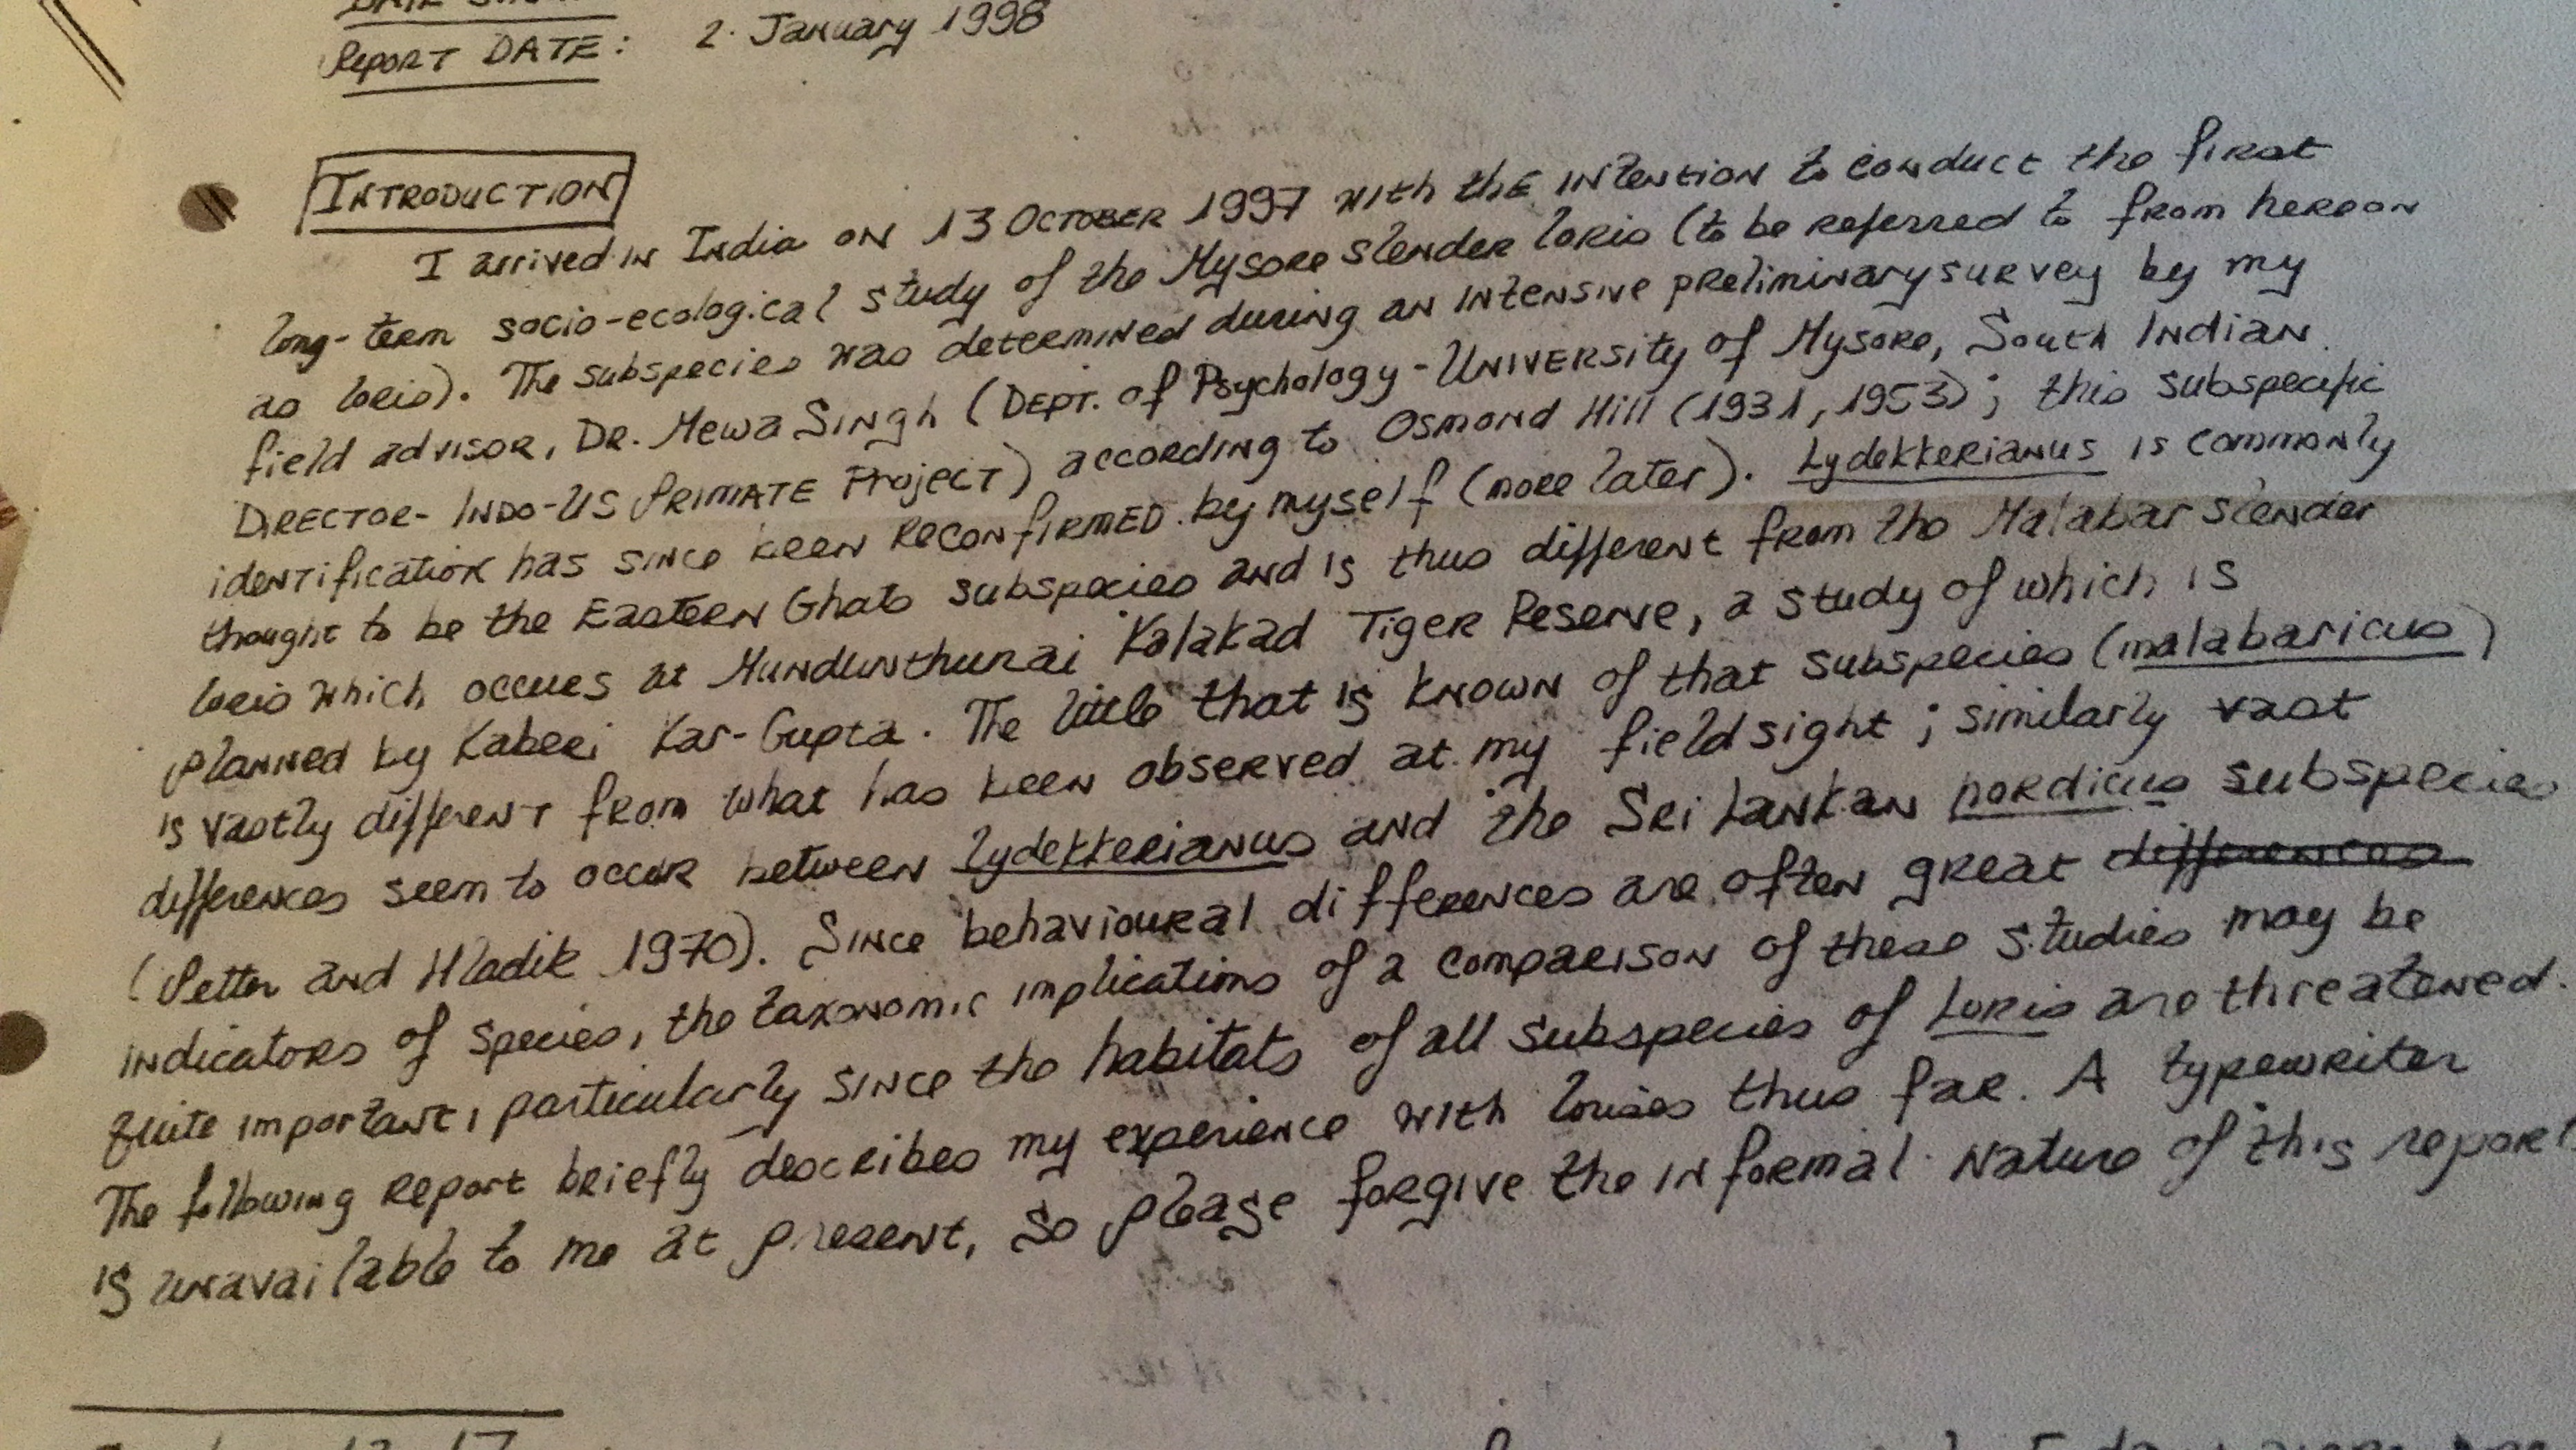 REPORT DATE: 2. January 1998
INTRODUCTION
I arrived in India on 13 October 1997 with the intention to conduct the first
long-term socio-ecological study of the Mysore slender loris (to be referred to from hereon
as loris). The subspecies was determined during an intensive preliminary survey by my
field advisor, Dr. Mewa Singh (Dept. of Psychology - University of Mysore, South Indian
Director - Indo-US Primate Project) according to Osmond Hill (1931, 1953); this subspecific
identification has since been reconfirmed by myself (more later). Lydekkerianus is commonly
thought to be the Eastern Ghats subspecies and is thus different from the Malabar slender
loris which occurs at Mundunthurai Kalakad Tiger Reserve, a study of which is
planned by Kaberi Kar-Gupta. The little that is known of that subspecies (malabaricus)
is vastly different from what has been observed at my field sight; similarly vast
differences seem to occur between lydekkerianus and the Sri Lankan nordicus subspecies
(Petter and Hladik 1970). Since behavioural differences are often great differences
indicators of species, the taxonomic implications of a comparison of these studies may be
quite important, particularly since the habitats of all subspecies of Loris are threatened.
The following report briefly describes my experience with lorises thus far. A typewriter
is unavailable to me at present, so please forgive the informal nature of this report